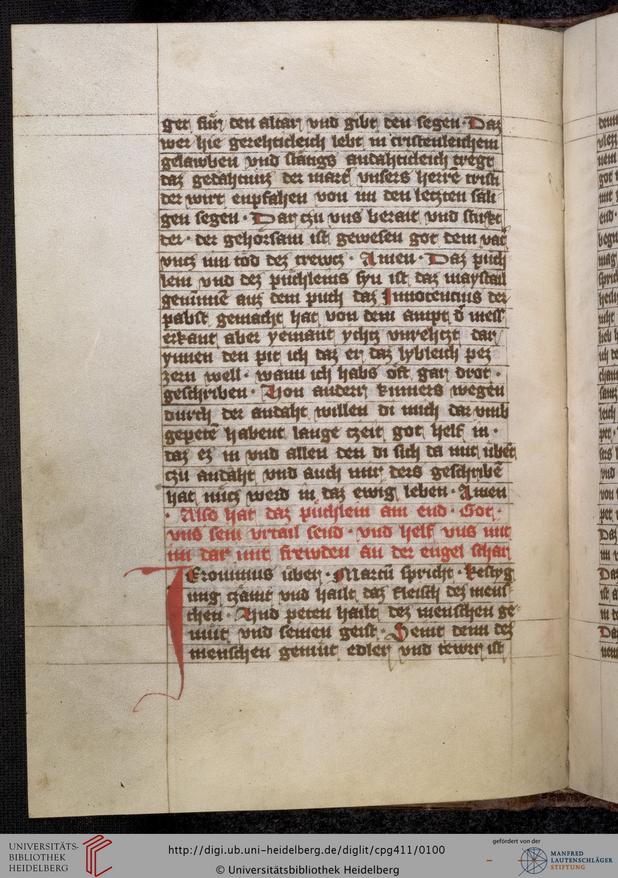 ger für den altar vnd gibt den segen · Daz
wer hie gerehticleich lebt in cristenleichem
gelawben vnd stangs andahticleich tregt
daz gedahtnuz der martt vnsers herrē cristi
der wirt enpfahen von im den letzten säli
gen segen · Dar czu vns berait vnd
der · der gehorsam ist gewesen got dem vat
vncz inn tod dez crewcz · Amen · Daz püch
lein vnd dez püchleins syn ist daz maystail
genumē auz dem puch daz Innocencius der
pabst gemacht hat von dem ampt d mess
erkant aber yemant ychcz vnrehtz dar
ynnen den pit ich daz er daz lybleich pez
zern well · wann ich habs oft gar drot ·
geschriben · Von andern kumers wegen
durch der andaht willen di mich dar vmb
gepetē habent lange czeit got helf in ·
daz ez in vnd allen den di sich da mit übēt
czu andaht vnd auch mir ders geschribē
hat nücz werd in daz ewig leben · Amen
· Also hat daz püchlein ain end · Got ·
vns sein vrtail send · vnd helf vns mit
im dar mit frewden an der engel schar
Jeronimus über · Marcū spricht · Kestyg
ung czämt vnd hailt daz fleisch dez mens
chen · Vnd peten hailt dez menschen ge
müt vnd seinen geist · Seint denn dez
menschen gemüt edler vnd tewrr ist
UNIVERSITÄTS-
BIBLIOTHEK
HEIDELBERG
http://digi.ub.uni-heidelberg.de/diglit/cpg411/0100
© Universitätsbibliothek Heidelberg
gefördert von der
MANFRED
LAUTENSCHLÄGER
STIFTUNG